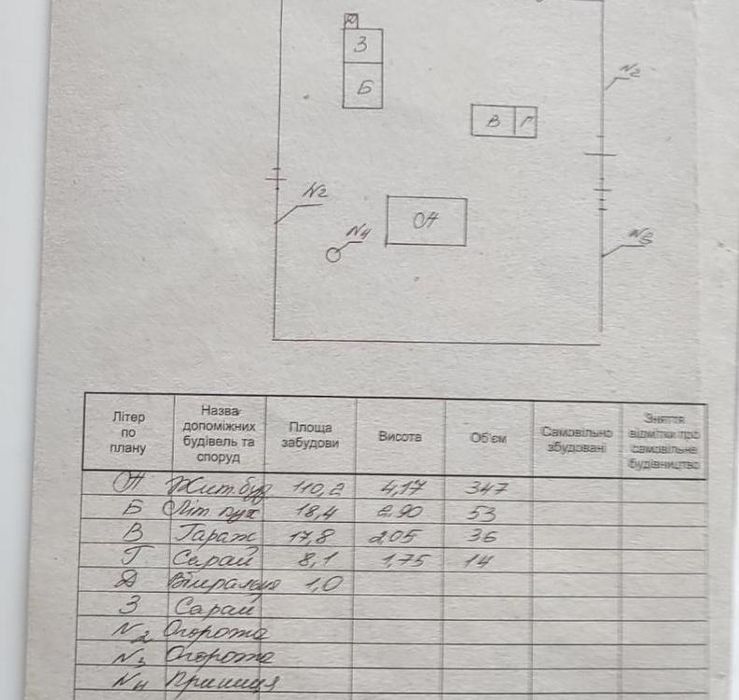 Д
З
Б
В Г
№2
№2
№4
ОА
№3
Літер по плану
Назва допоміжних будівель та споруд
Площа забудови
Висота
Об'єм
Самовільно збудовані
Зняття відмітки про самовільне будівництво
ОА Жит. буд 110,2 4,17 347
Б Літ кух 18,4 2,90 53
В Гараж 17,8 2,05 36
Г Сарай 8,1 1,75 14
Д Вбиральня 1,0
З Сарай
№2 Огорожа
№3 Огорожа
№4 Криниця